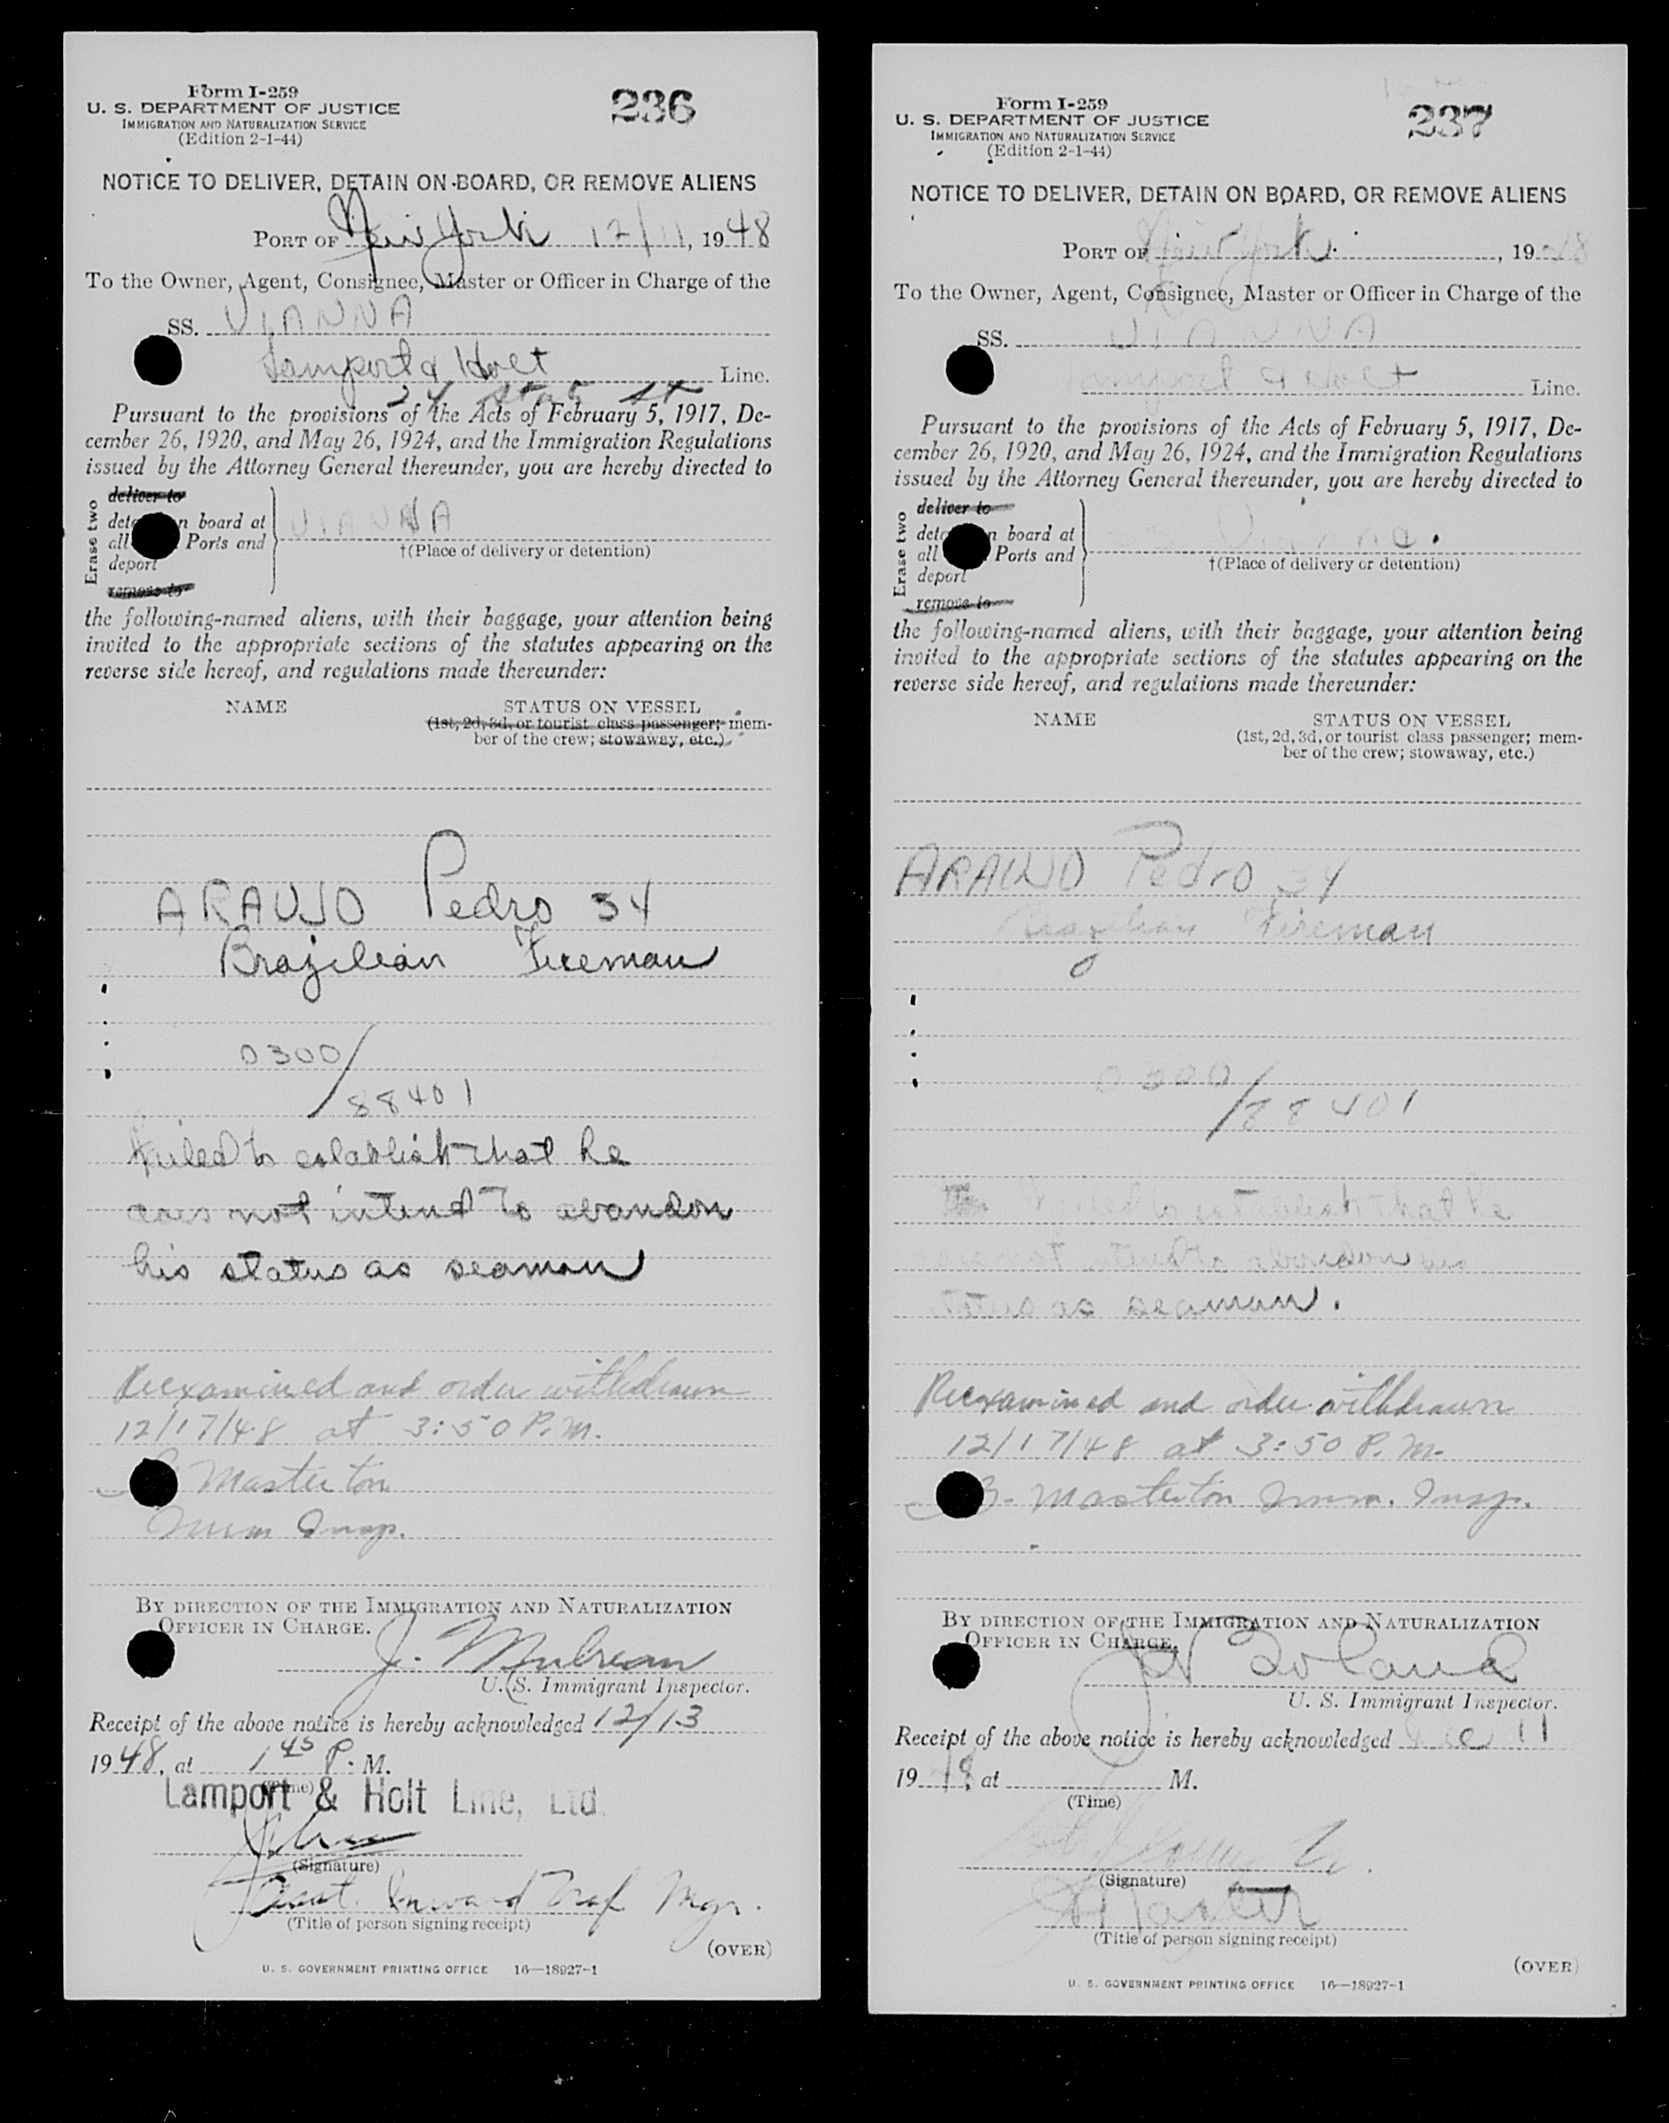 Form I-259
U. S. DEPARTMENT OF JUSTICE
IMMIGRATION AND NATURALIZATION SERVICE
(Edition 2-1-44)
236
NOTICE TO DELIVER, DETAIN ON BOARD, OR REMOVE ALIENS
PORT OF New York 12/11, 1948
To the Owner, Agent, Consignee, Master or Officer in Charge of the
SS. VIANNA
Lamport & Holt Line.
24 State St
Pursuant to the provisions of the Acts of February 5, 1917, De-
cember 26, 1920, and May 26, 1924, and the Immigration Regulations
issued by the Attorney General thereunder, you are hereby directed to
Erase two
deliver to
n board at VIANNA
all Ports and †(Place of delivery or detention)
deport
remove to
the following-named aliens, with their baggage, your attention being
invited to the appropriate sections of the statutes appearing on the
reverse side hereof, and regulations made thereunder:
NAME STATUS ON VESSEL
(1st, 2d, 3d, or tourist class passenger; mem-
ber of the crew; stowaway, etc.)
ARAUJO Pedro 34
Brazilian Fireman
0300/
88401
Failed to establish that he
does not intend to abandon
his status as seaman
Reexamined and order withdrawn
12/17/48 at 3:50 P.M.
Masterton
Imm Insp.
BY DIRECTION OF THE IMMIGRATION AND NATURALIZATION
OFFICER IN CHARGE.
J.
U. S. Immigrant Inspector.
Receipt of the above notice is hereby acknowledged 12/13
1948, at 1 45 P. M.
(Time)
Lamport & Holt Line, Ltd.
(Signature)
Asst. Inward Traf Mgr.
(Title of person signing receipt)
(OVER)
U. S. GOVERNMENT PRINTING OFFICE 16—18927-1
Form I-259
U. S. DEPARTMENT OF JUSTICE
IMMIGRATION AND NATURALIZATION SERVICE
(Edition 2-1-44)
237
NOTICE TO DELIVER, DETAIN ON BOARD, OR REMOVE ALIENS
PORT OF New York, 1948
To the Owner, Agent, Consignee, Master or Officer in Charge of the
SS. VIANNA
Lamport & Holt Line.
Pursuant to the provisions of the Acts of February 5, 1917, De-
cember 26, 1920, and May 26, 1924, and the Immigration Regulations
issued by the Attorney General thereunder, you are hereby directed to
Erase two
deliver to
n board at SS Vianna.
all Ports and †(Place of delivery or detention)
deport
remove to
the following-named aliens, with their baggage, your attention being
invited to the appropriate sections of the statutes appearing on the
reverse side hereof, and regulations made thereunder:
NAME STATUS ON VESSEL
(1st, 2d, 3d, or tourist class passenger; mem-
ber of the crew; stowaway, etc.)
ARAUJO Pedro 34
Brazilian Fireman
0300/
88401
failed to establish that he
does not intend to abandon his
status as seaman.
Reexamined and order withdrawn
12/17/48 at 3:50 P. M.
B. Masterton Imm. Insp.
BY DIRECTION OF THE IMMIGRATION AND NATURALIZATION
OFFICER IN CHARGE.
Boland
U. S. Immigrant Inspector.
Receipt of the above notice is hereby acknowledged Dec 11
1948, at M.
(Time)
(Signature)
Master
(Title of person signing receipt)
(OVER)
U. S. GOVERNMENT PRINTING OFFICE 16—18927-1